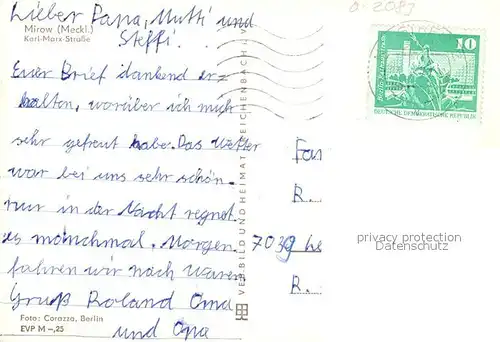 Lieber Papa, Mutti und
Steffi.
Mirow (Meckl.)
Karl-Marx-Straße
Euer Brief dankend er-
halten, worüber ich mich
sehr gefreut habe. Das Wetter
war bei uns sehr schön.
nur in der Nacht regnet
es manchmal. Morgen
fahren wir nach Waren.
Gruß Roland Oma
und Opa
Foto: Corazza, Berlin
EVP M –,25
VEB BILD UND HEIMAT REICHENBACH i. V.
10
DEUTSCHE DEMOKRATISCHE REPUBLIK
Fam
R.
7039 Le
R.
privacy protection
Datenschutz